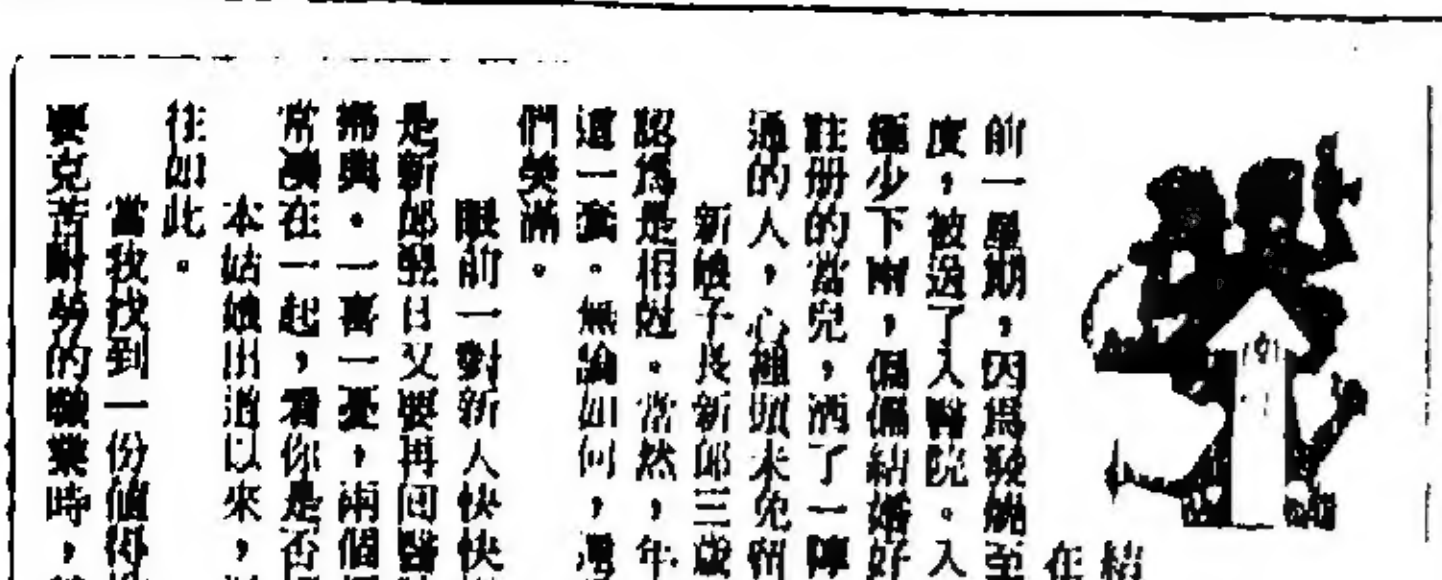 結
在
前一星期，因為發燒至
度，被送了入醫院。入
極少下雨，偏偏結婚好
註册的當兒，洒了一陣
通的人，心裡頭未免留
新娘子長新郎三歲
認為是相尅。當然，年
這一套。無論如何，還
們美滿。
眼前一對新人快快
是新郎翌日又要再回醫
掃興。一喜一憂，兩個
常讓在一起，看你是否
本姑娘出道以來，
往如此。
當我找到一份值得
要克苦耐勞的職業時，